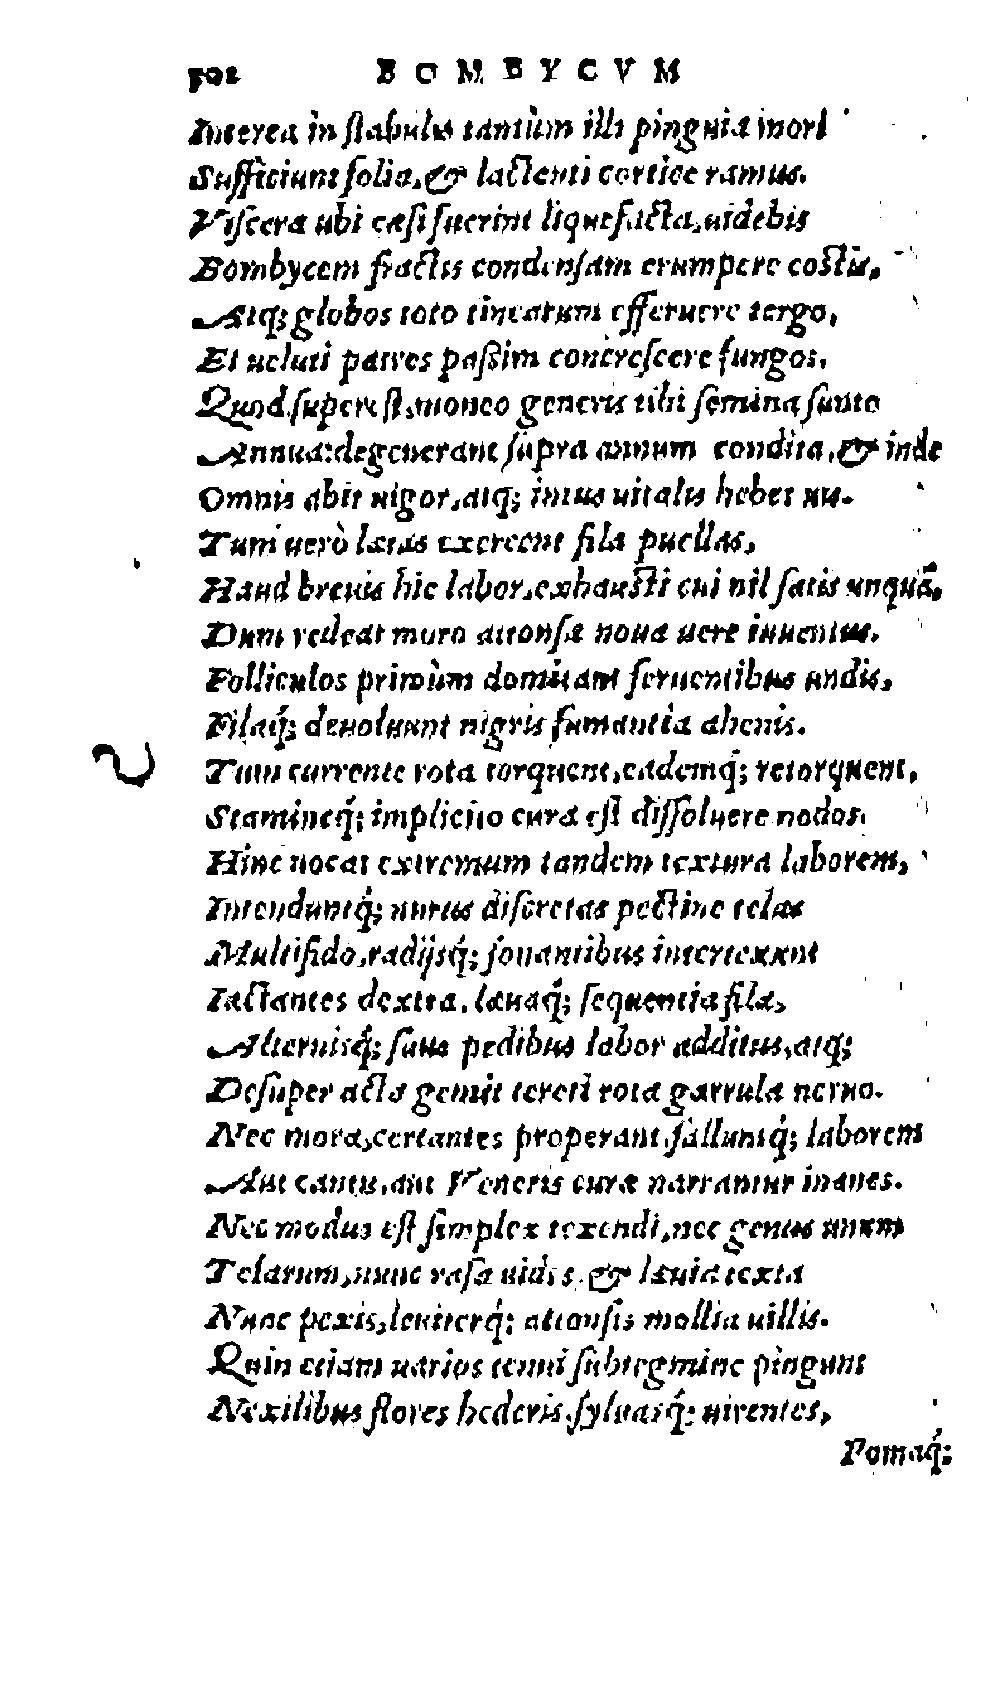 502 BOMBYCVM
Interea in stabulis tantùm illi pinguia mori
Sufficiunt folia, & lactenti cortice ramus.
Viscera ubi cæsi fuerint liquefacta, uidebis
Bombycem fractis condensam erumpere costis,
Atq; globos toto tinearum efferuere tergo,
Et ueluti putres paßim concrescere fungos.
Quod superest, moneo generis tibi semina sunto
Annua: degenerant supra annum condita, & inde
Omnis abit uigor, atq; intus uitalis hebet uis.
Tum uerò lætas exercent fila puellas,
Haud breuis hic labor, exhausti cui nil satis unquã,
Dum redeat moro attonsæ noua uere iuuentus.
Folliculos primùm domitant feruentibus undis,
Filaq́; deuoluunt nigris fumantia ahenis.
Tum currente rota torquent, eademq́; retorquent,
Stamineq́; implicito cura est dissoluere nodos.
Hinc uocat extremum tandem textura laborem,
Intenduntq́; nurus discretas pectine telas
Multifido, radijsq́; sonantibus intertexunt
Iactantes dextra, læuaq́; sequentia fila,
Alternisq́; suus pedibus labor additus, atq;
Desuper acta gemit tereti rota garrula neruo.
Nec mora, certantes properant, falluntq́; laborem
Aut cantu, aut Veneris curæ narrantur inanes.
Nec modus est simplex texendi, nec genus unum
Telarum, nunc rasa uides, & læuia texta
Nunc pexis, leuiterq́; attonsis mollia uillis.
Quin etiam uarios tenui subtegmine pingunt
Nexilibus flores hederis, syluasq́; uirentes,
Pomaq́;